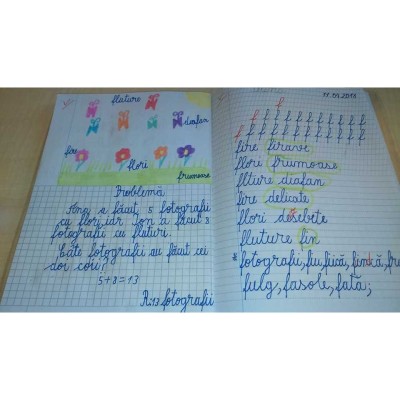 fluture
diafan
fire
flori
frumoase
Problemă
Ana a făcut 5 fotografii
cu flori, iar Ion a făcut 8
fotografii cu fluturi.
Câte fotografii au făcut cei
doi copii?
5+8=13
R: 13 fotografii
f
f f f f f f f f f f f f
f f f f f f f f f f f f
fire firave
flori frumoase
fluture diafan
fire delicate
flori deosebite
fluture fin
* fotografii, fiu, fiică, fință,
fulg, fasole, fată;